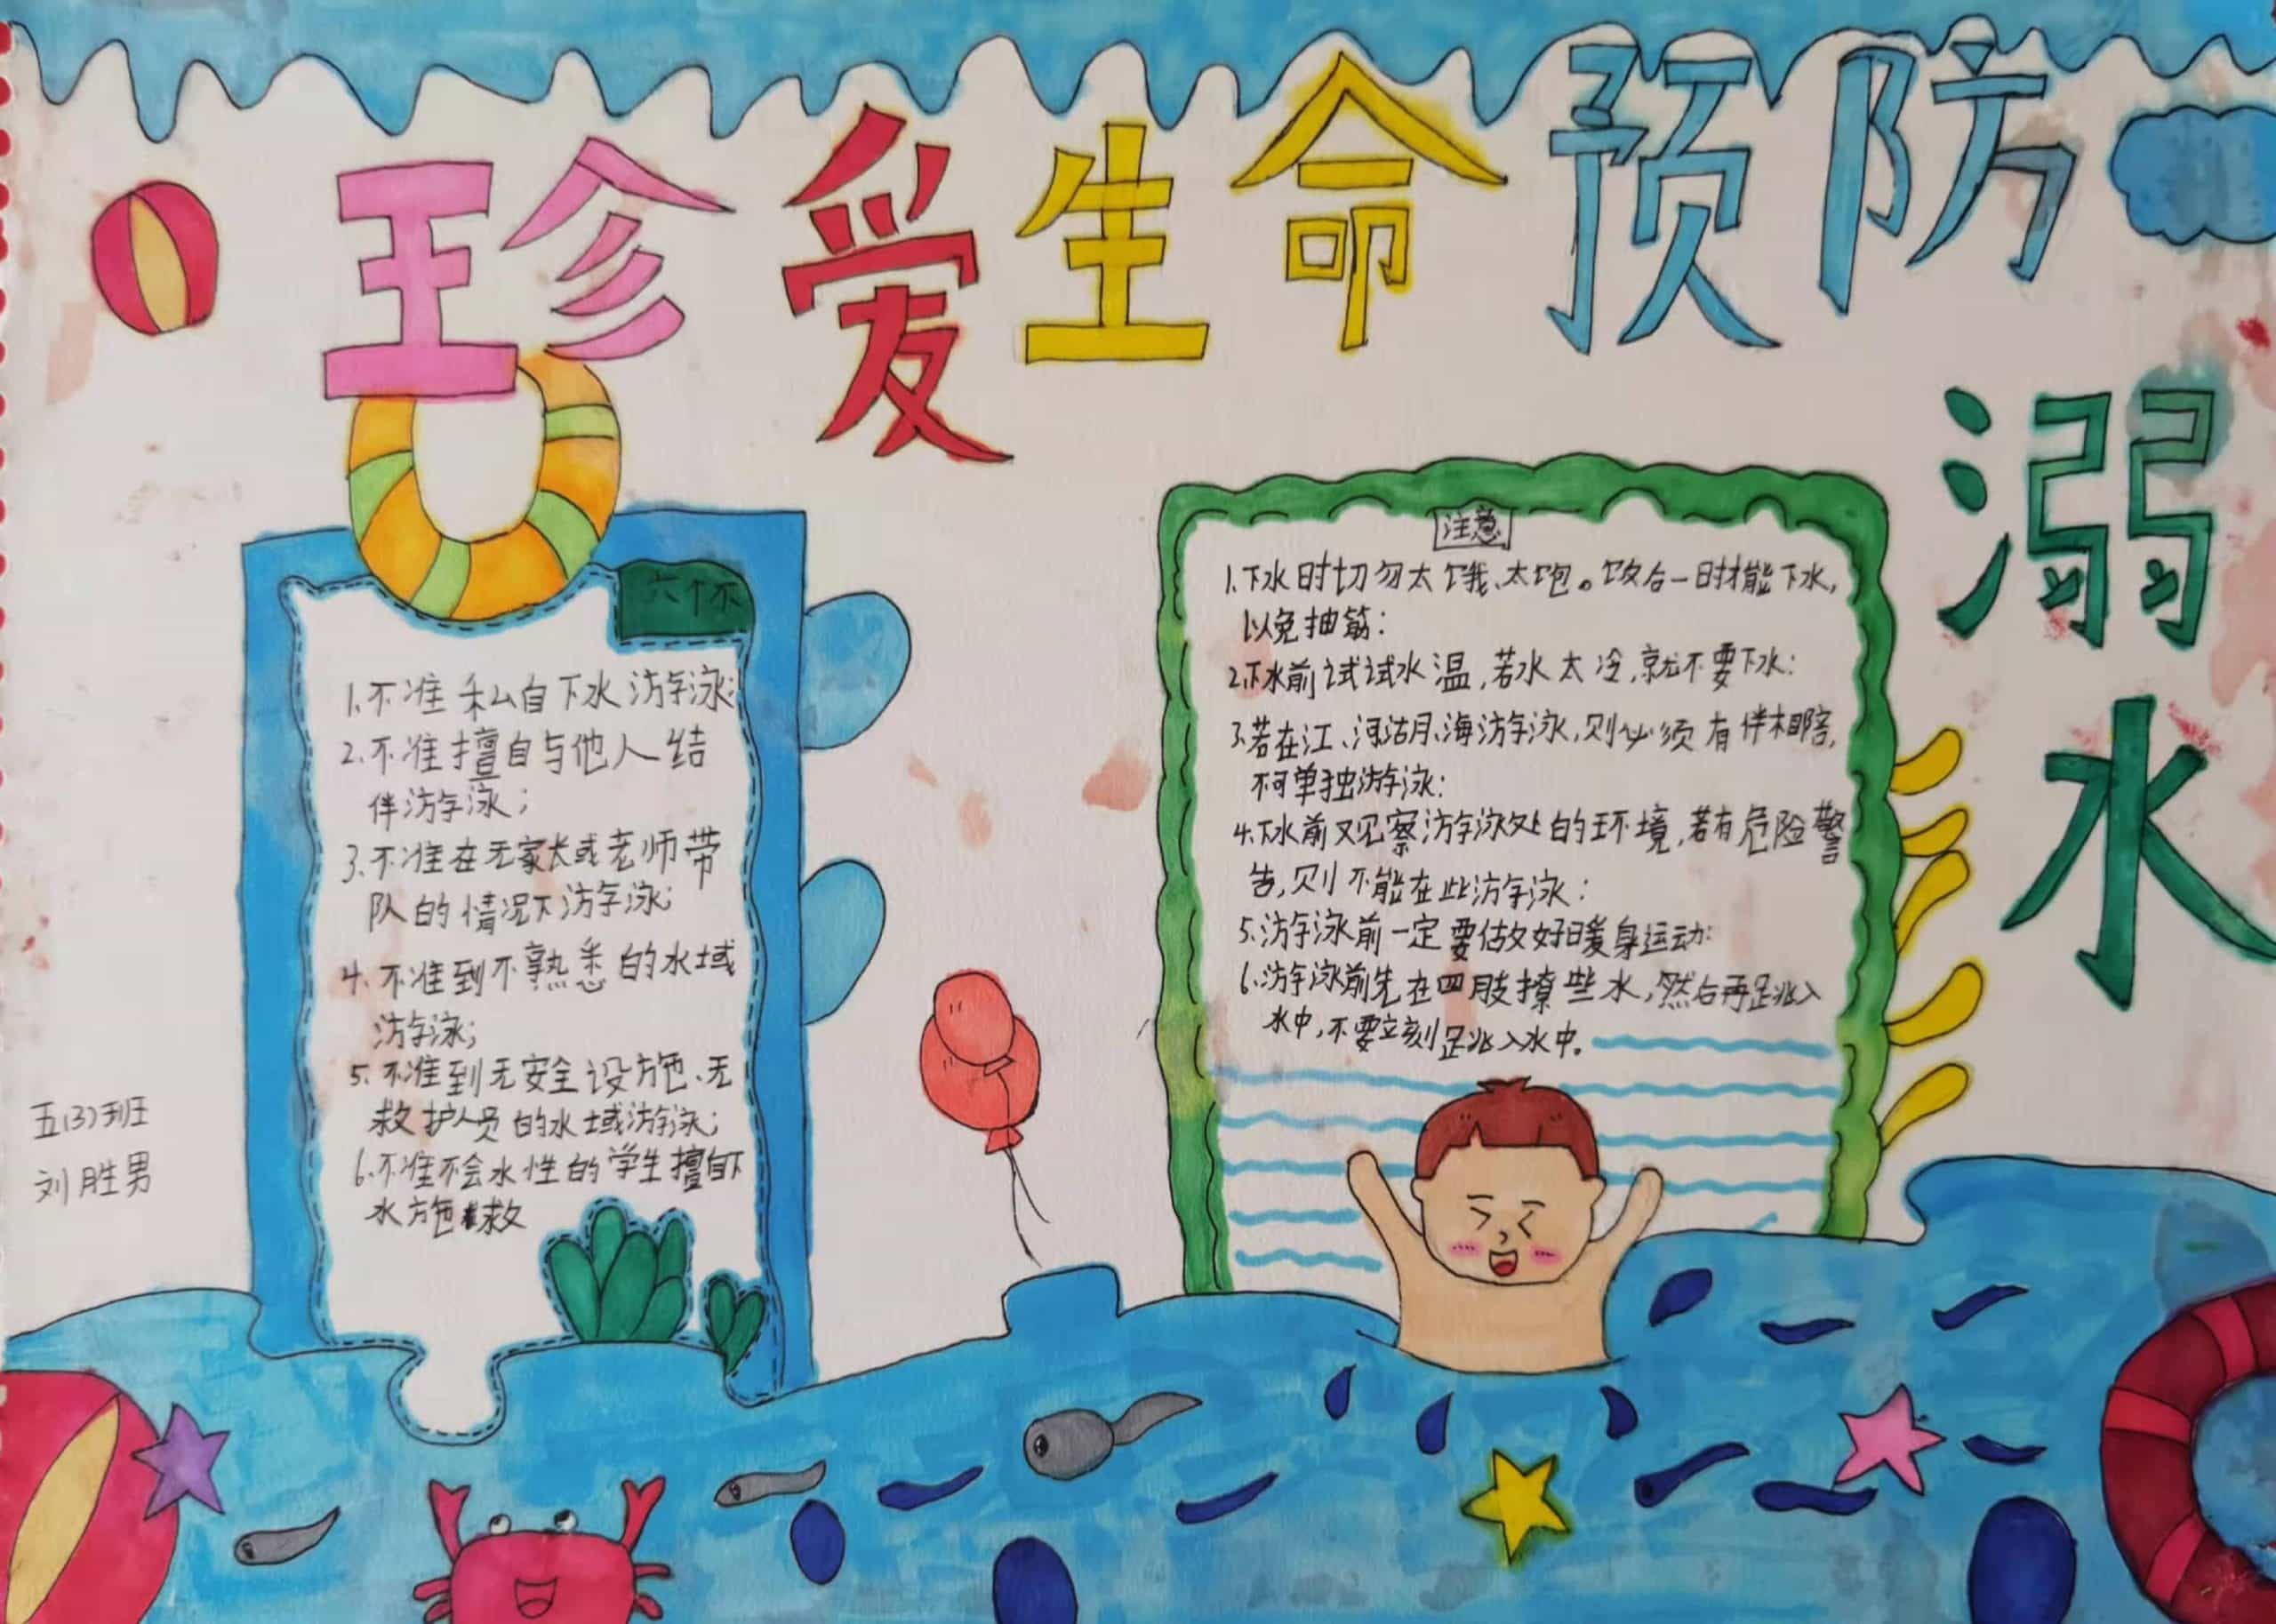 珍爱生命预防
溺
水
六个不
1.不准私自下水游泳;
2.不准擅自与他人结
伴游泳;
3.不准在无家长或老师带
队的情况下游泳;
4.不准到不熟悉的水域
游泳;
5.不准到无安全设施、无
救护人员的水域游泳;
6.不准不会水性的学生擅自下
水施救
注意
1.下水时切勿太饿、太饱。饭后一时才能下水,
以免抽筋:
2.下水前试试水温,若水太冷,就不要下水:
3.若在江、河、湖、海游泳,则必须有伴相陪,
不可单独游泳:
4.下水前观察游泳处的环境,若有危险警
告,则不能在此游泳:
5.游泳前一定要做好暖身运动:
6.游泳前先在四肢撩些水,然后再跳入
水中,不要立刻跳入水中。
五(3)班
刘胜男